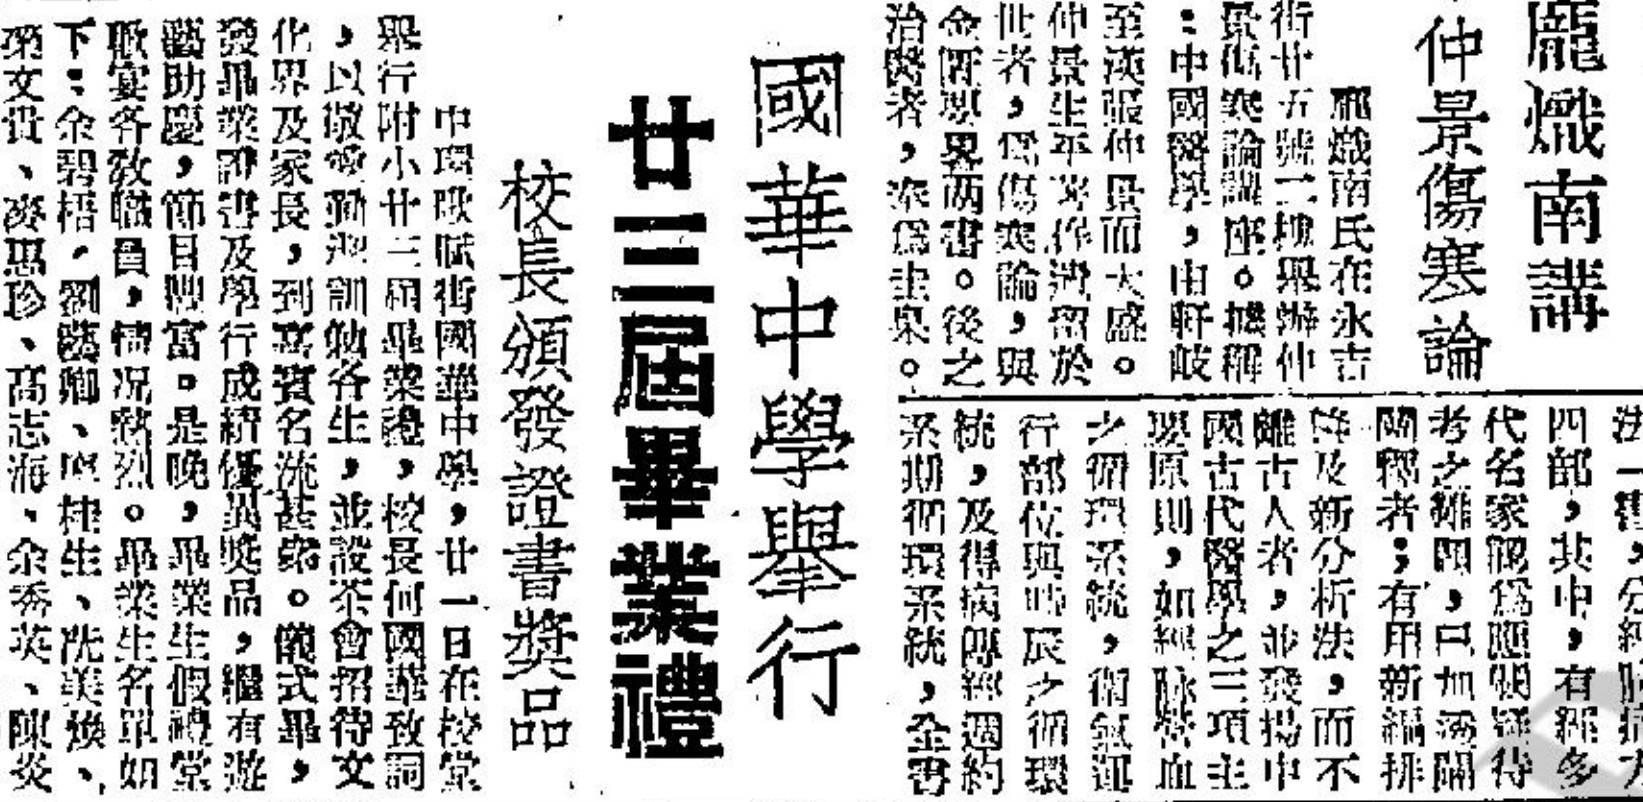 龐熾南講
仲景傷寒論
龐熾南氏在永吉
街廿五號二樓舉辦仲
景傷寒論講座。據稱
：中國醫學，由軒岐
至漢張仲景而大盛。
仲景生平著作遺留於
世者，為傷寒論，與
金匱要畧両書。後之
治醫者，奉為圭臬。
法一書，分
四部，其中，有
代名家認為
考之
關釋者；有用新編排
降及新分析法，而不
離古人者，並發揚中
國古代醫學之三項主
要原則，如經脉營血
之循環系統，衛氣運
行部位與時辰之循環
統，及得病傳經週約
系期循環系統，全書
國華中學舉行
廿三屆畢業禮
校長頒發證書獎品
中環歌賦街國華中學，廿一日在校堂
舉行附小廿三屆畢業禮，校長何國華致詞
，以敬業勤
訓勉各生，並設茶會招待文
化界及家長，到嘉賓名流甚衆。儀式畢，
發畢業證書及學行成績優異獎品，繼有遊
藝助慶，節目豐富。是晚，畢業生假禮堂
歡宴各教職員，情况熱烈。畢業生名單如
下：余碧梧，劉藝卿、
桂生、冼美煥、
文貴、麥惠珍、高志海、余秀英、陳炎